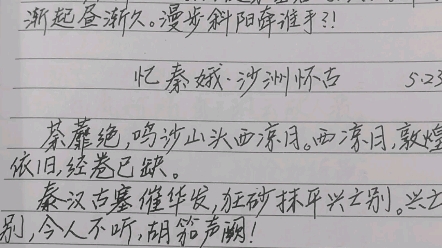 渐起昼渐久。漫步斜阳牵谁手?!
忆秦娥·沙洲怀古 5.23
荼蘼绝,鸣沙山头西凉月。西凉月,敦煌
依旧,经卷已缺。
秦汉古塞催华发,狂砂抹平兴亡别。兴亡
别,今人不听,胡笳声阙!